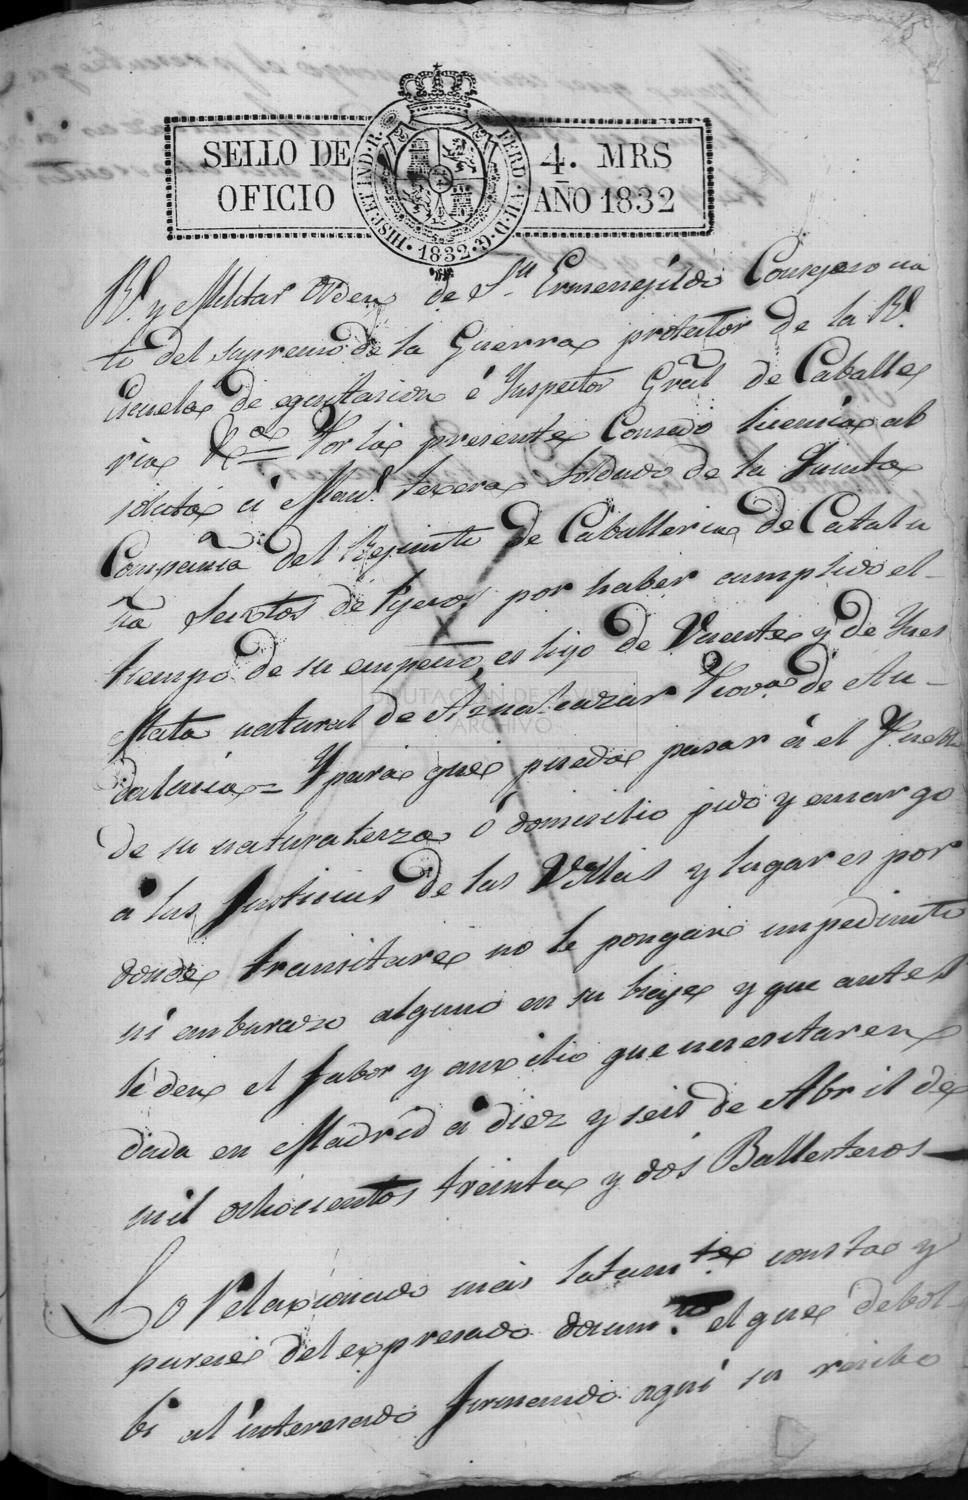 SELLO DE OFICIO
HISP. ET IND. R. FERD. VII. D. G. 1832
4. MRS
AÑO 1832
Rl. y Militar Orden de Sn. Ermenegildo Consejero na
to del supremo de la Guerra protector de la Rl.
Escuela de equitacion é Ynspector Gral de Caballe
ria &a = Por la presente Consedo licencia ab
soluta á Manl. texera Soldado de la Quinta
Compañia del Rejimto de Caballeria de Catalu
ña Sextos de lijeros por haber cumplido el-
tiempo de su empeño, es hijo de Vicente y de Ynes
Mata natural de Aznalcazar Prova. de An-
dalucia = Y para que pueda pasar á el Pueblo
de su naturaleza ó domicilio pido y encargo
á las Justicias de las Villas y lugares por
donde transitare no le pongan impedimto
ni embarazo alguno en su biaje y que antes
le den el fabor y auxilio que necesitaren
dada en Madrid á diez y seis de Abril de
mil ochocientos treinta y dos Ballesteros
Lo Relaxionado mas latamte. consta y
parece del expresado documto. el que debol-
bi al interesado firmando aqui su recibo
DIPUTACIÓN DE SEVILLA
ARCHIVO